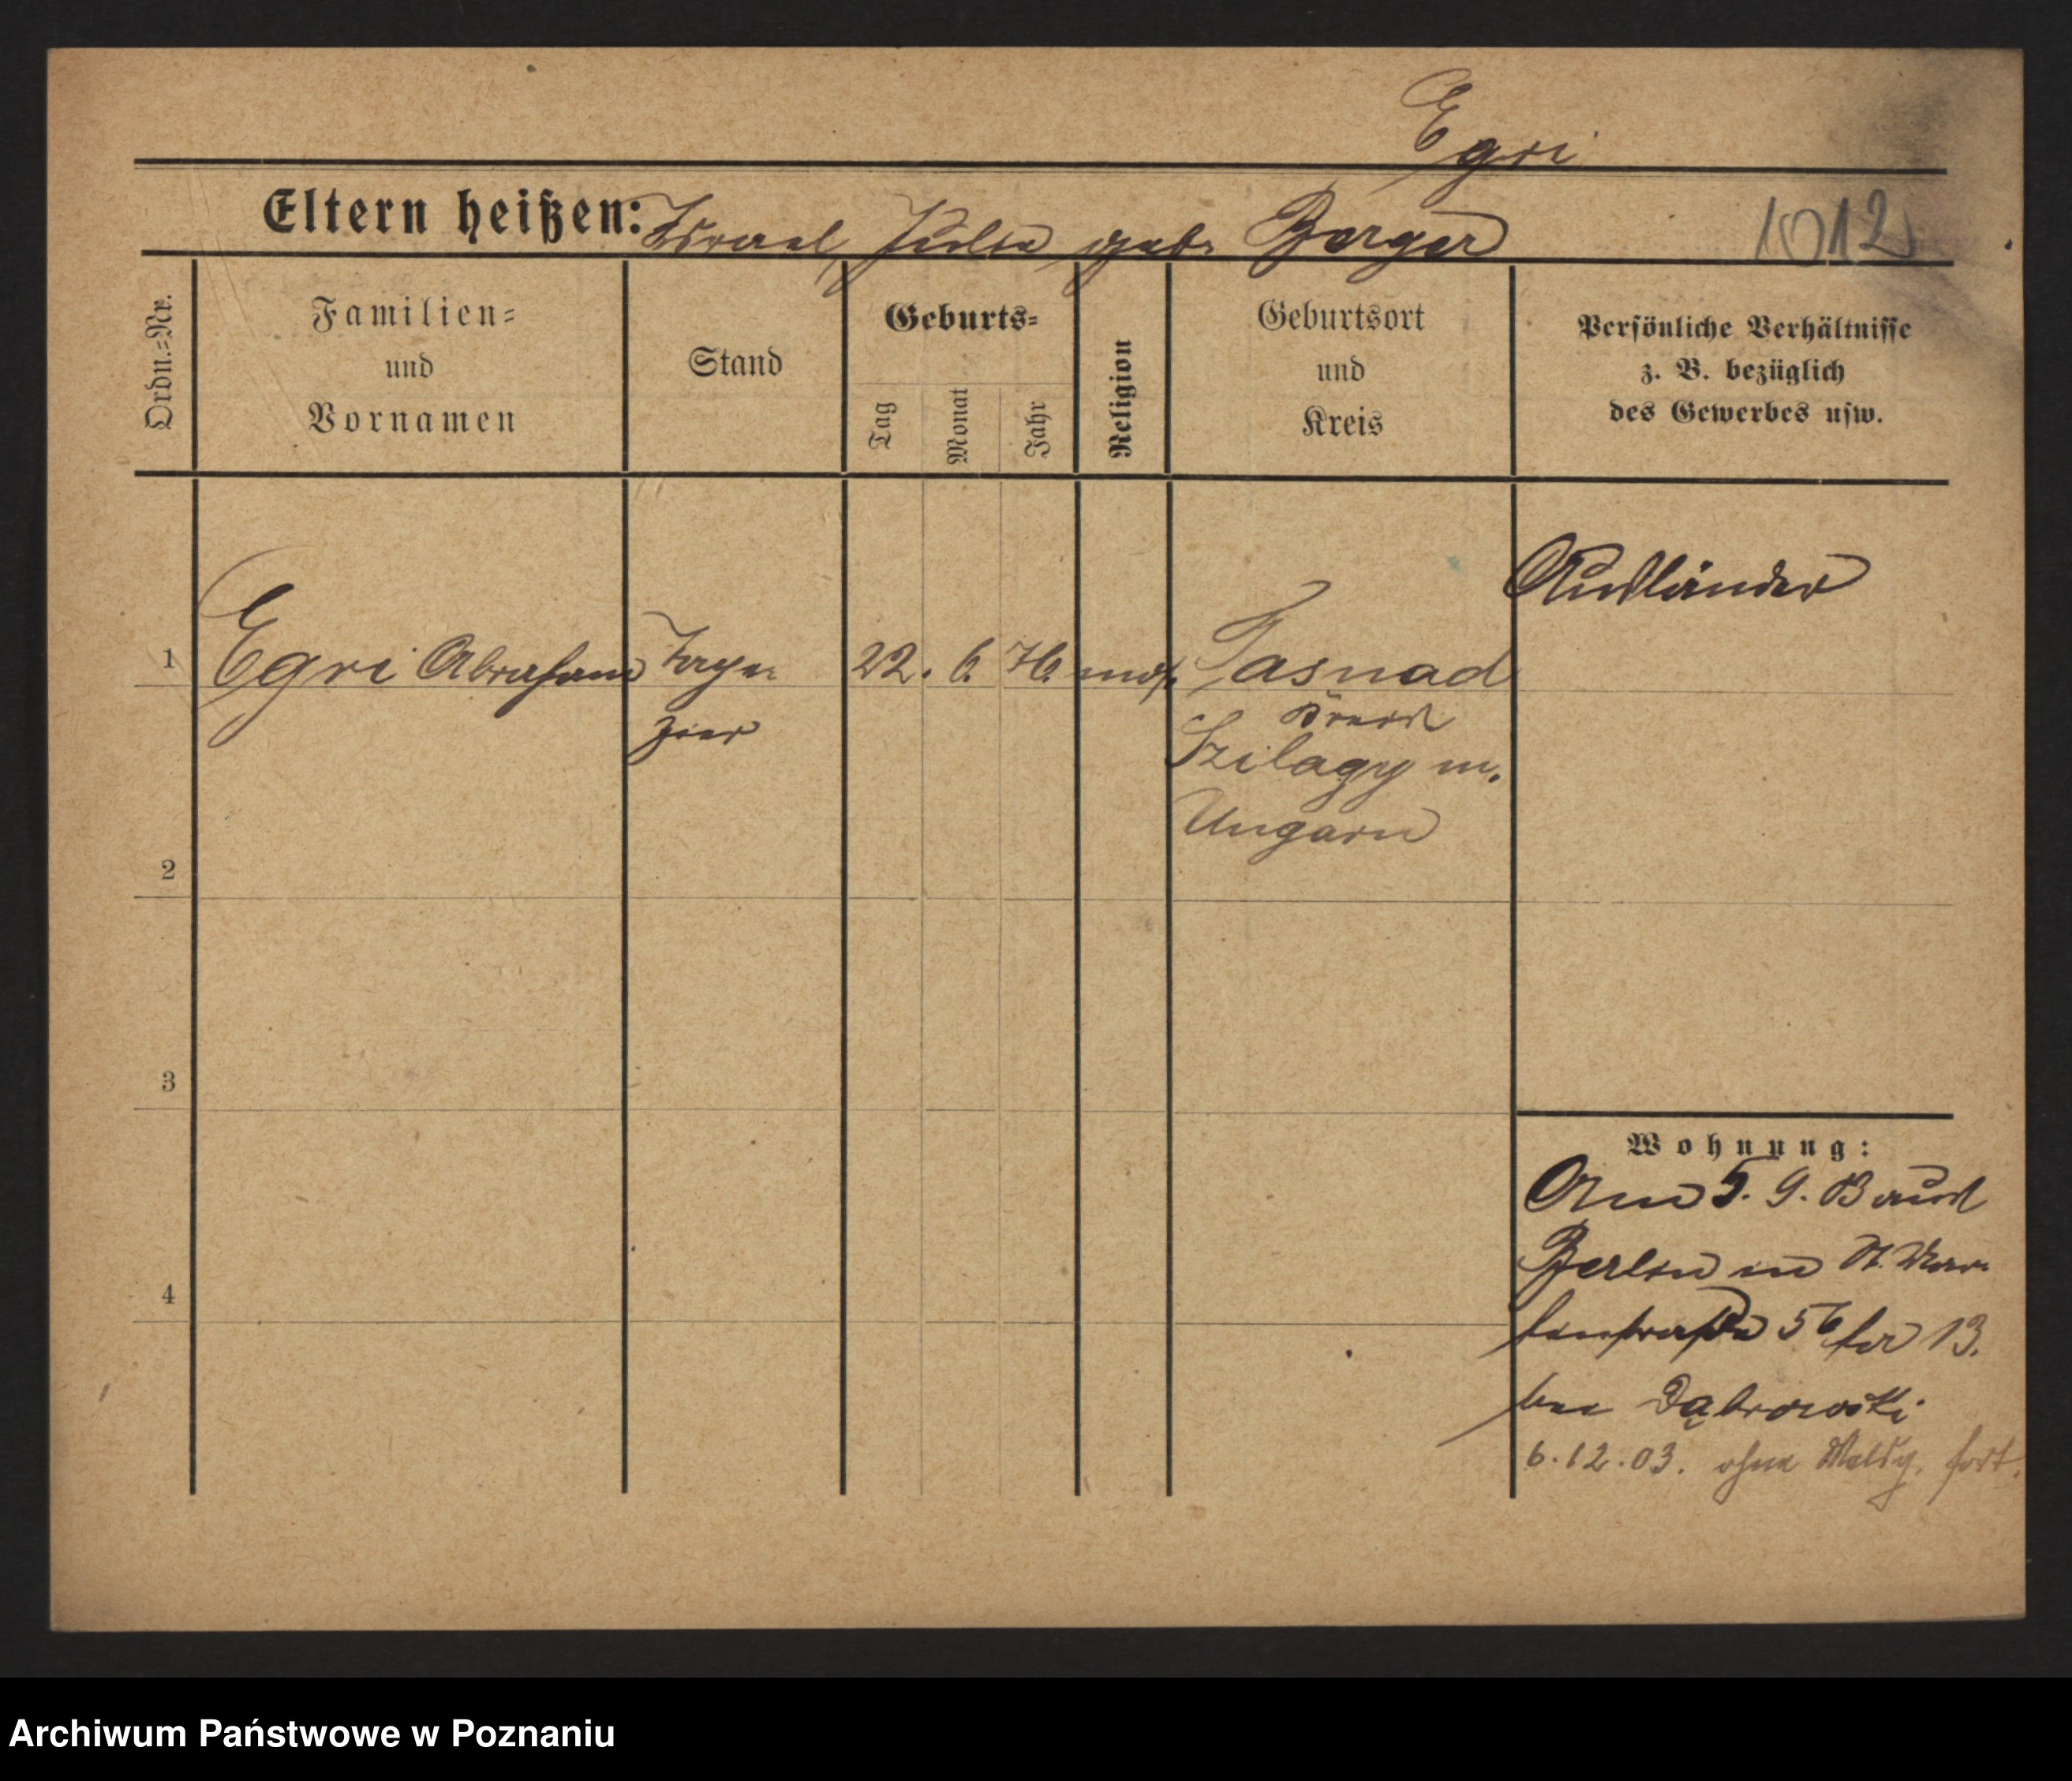 Egri
Eltern heißen: Israel, Julie geb. Berger
1012
Ordn.=Nr.
Familien=
und
Vornamen
Stand
Geburts=
Tag
Monat
Jahr
Religion
Geburtsort
und
Kreis
Persönliche Verhältnisse
z. B. bezüglich
des Gewerbes usw.
Ausländer
1 Egri Abraham 22. 6. 76. mos. Tasnad
zier Kreis
Szilagy in
Ungarn
2
3
4
Wohnung:
Am 5. 9. 03 aus
Berlin in St. Mar-
tinstraße 56 für 13.
bei Dąbrowski
6.12.03. ohne Meldg. fort.
Archiwum Państwowe w Poznaniu